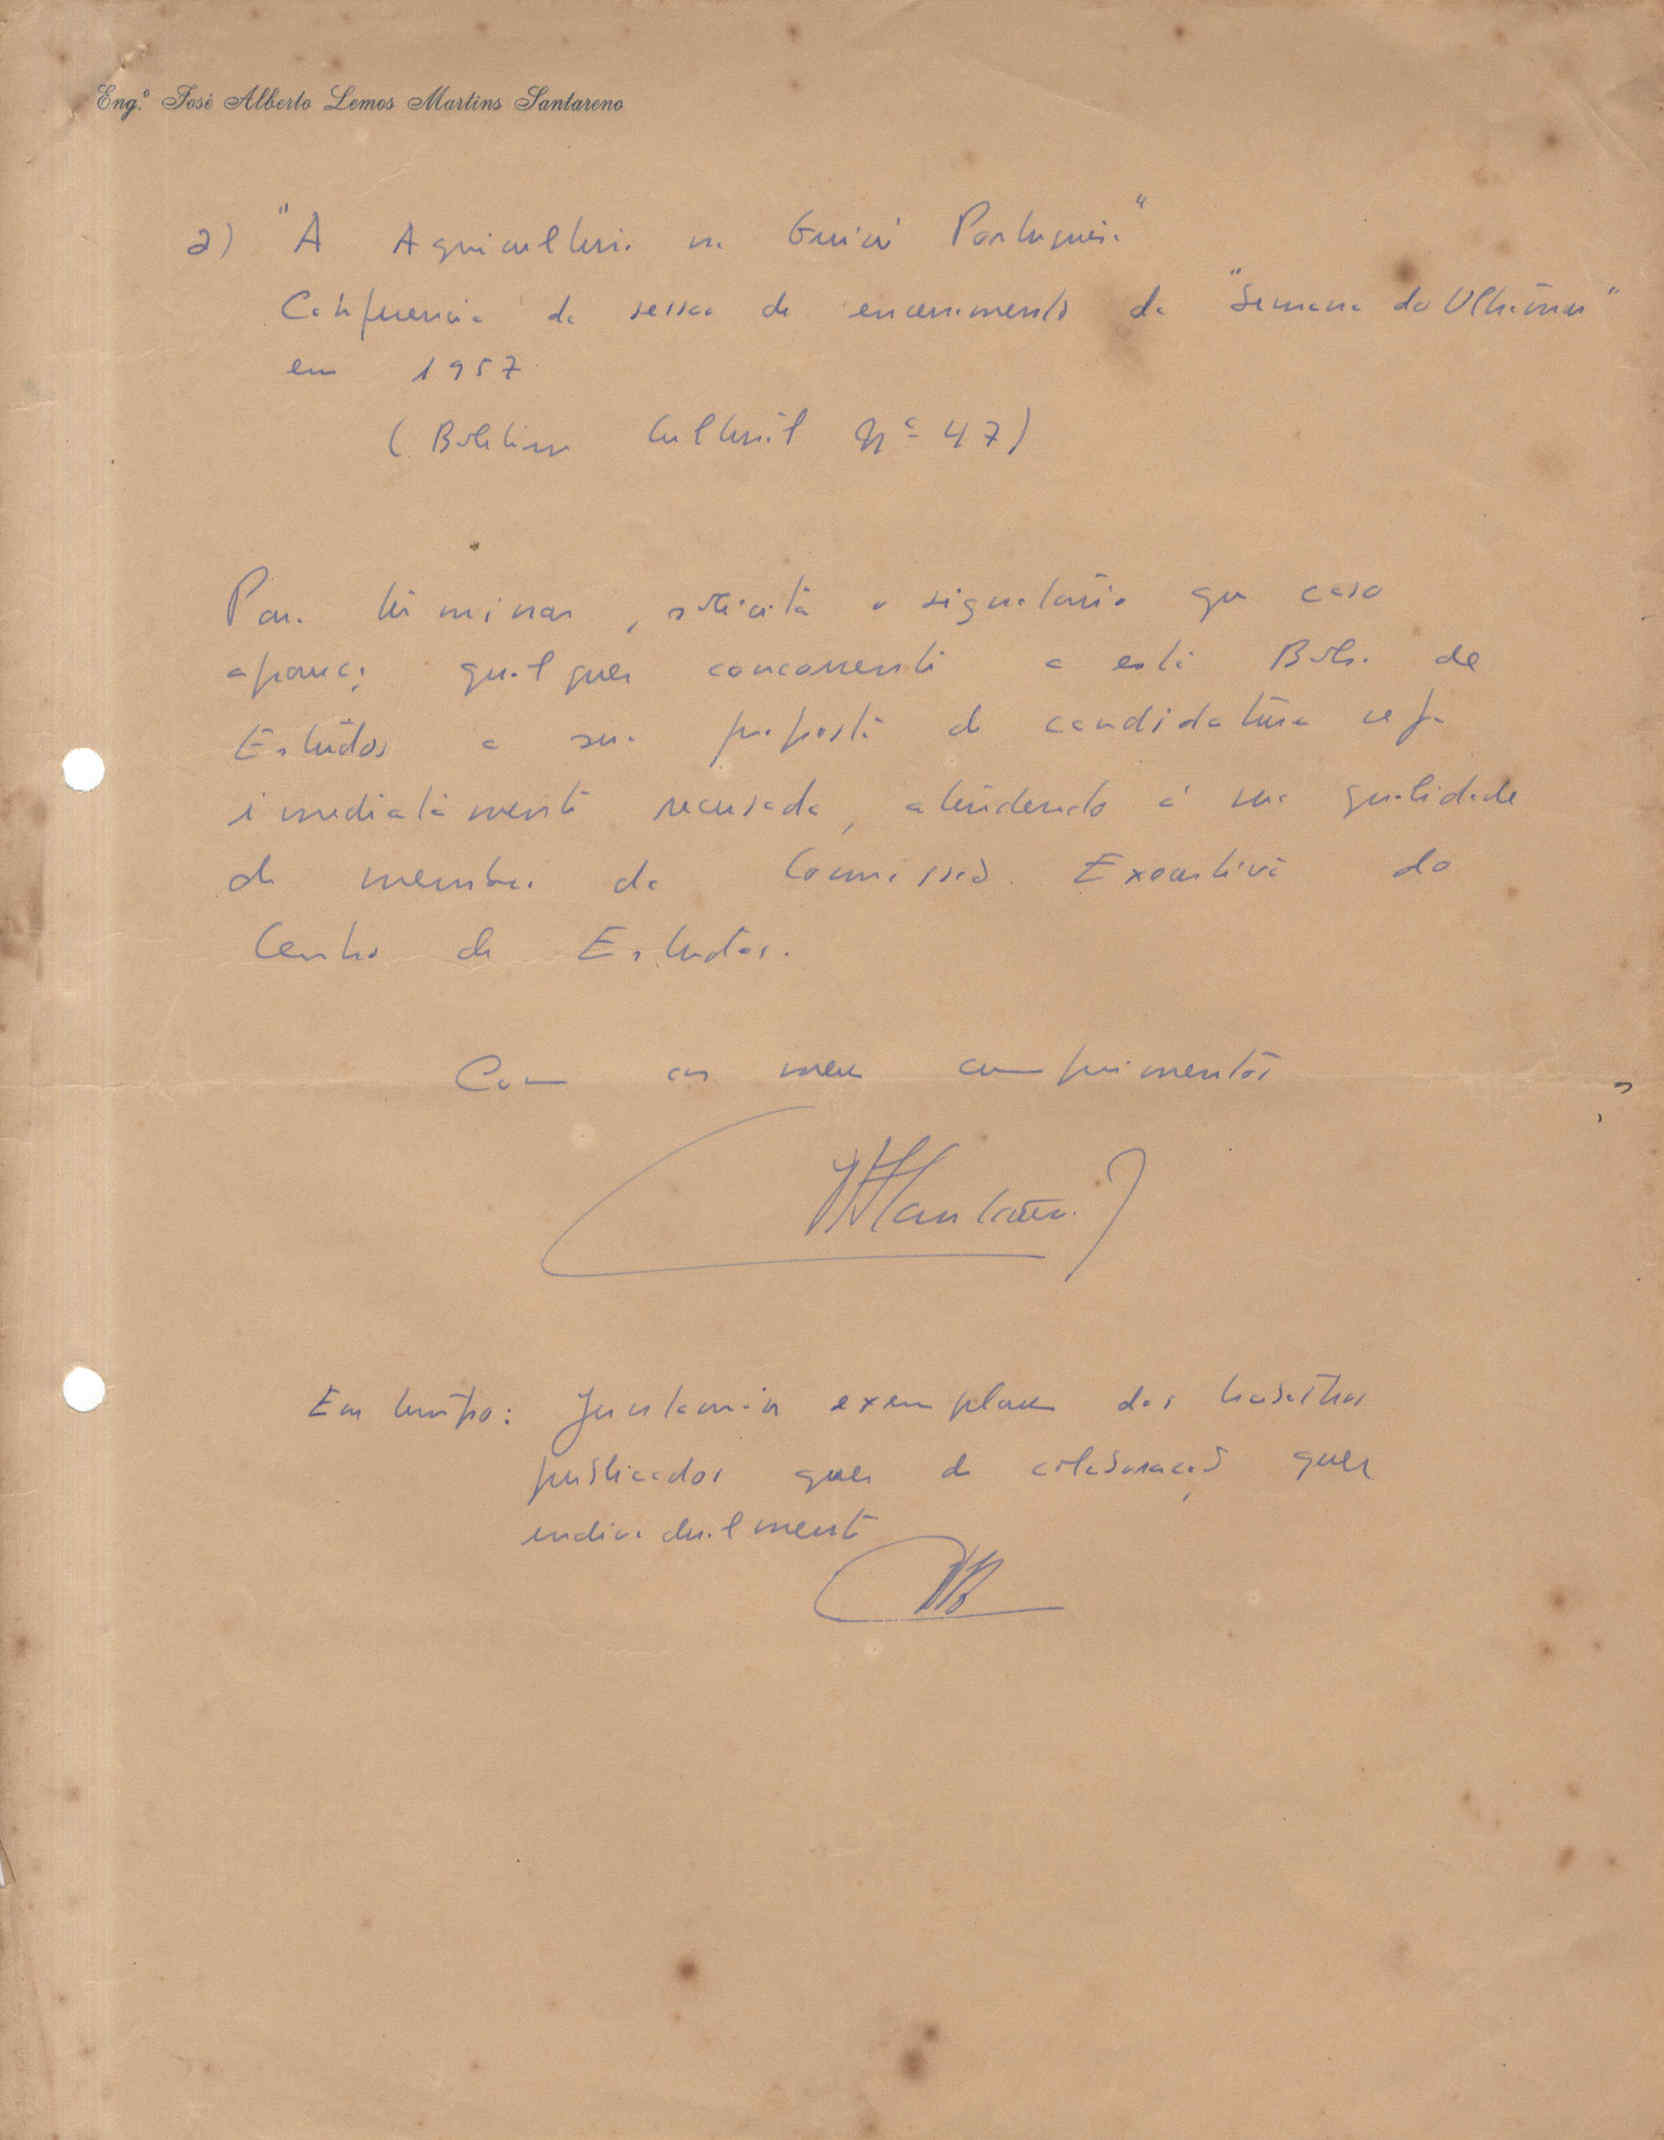 Eng.º José Alberto Lemos Martins Santareno
2) "A Agricultura na Guiné Portuguesa"
Conferencia da sessão de encerramento da "Semana do Ultramar"
em 1957
(Boletim Cultural Nº 47)
Para terminar, solicita o signatário que caso
apareça qualquer concorrente a esta Bolsa de
Estudos a sua proposta de candidatura seja
imediatamente recusada, atendendo á sua qualidade
de membro da Comissão Executiva do
Centro de Estudos.
Com os meus cumprimentos
Santareno
Em tempo: Juntam-se exemplares dos trabalhos
publicados quer de colaboração quer
individualmente